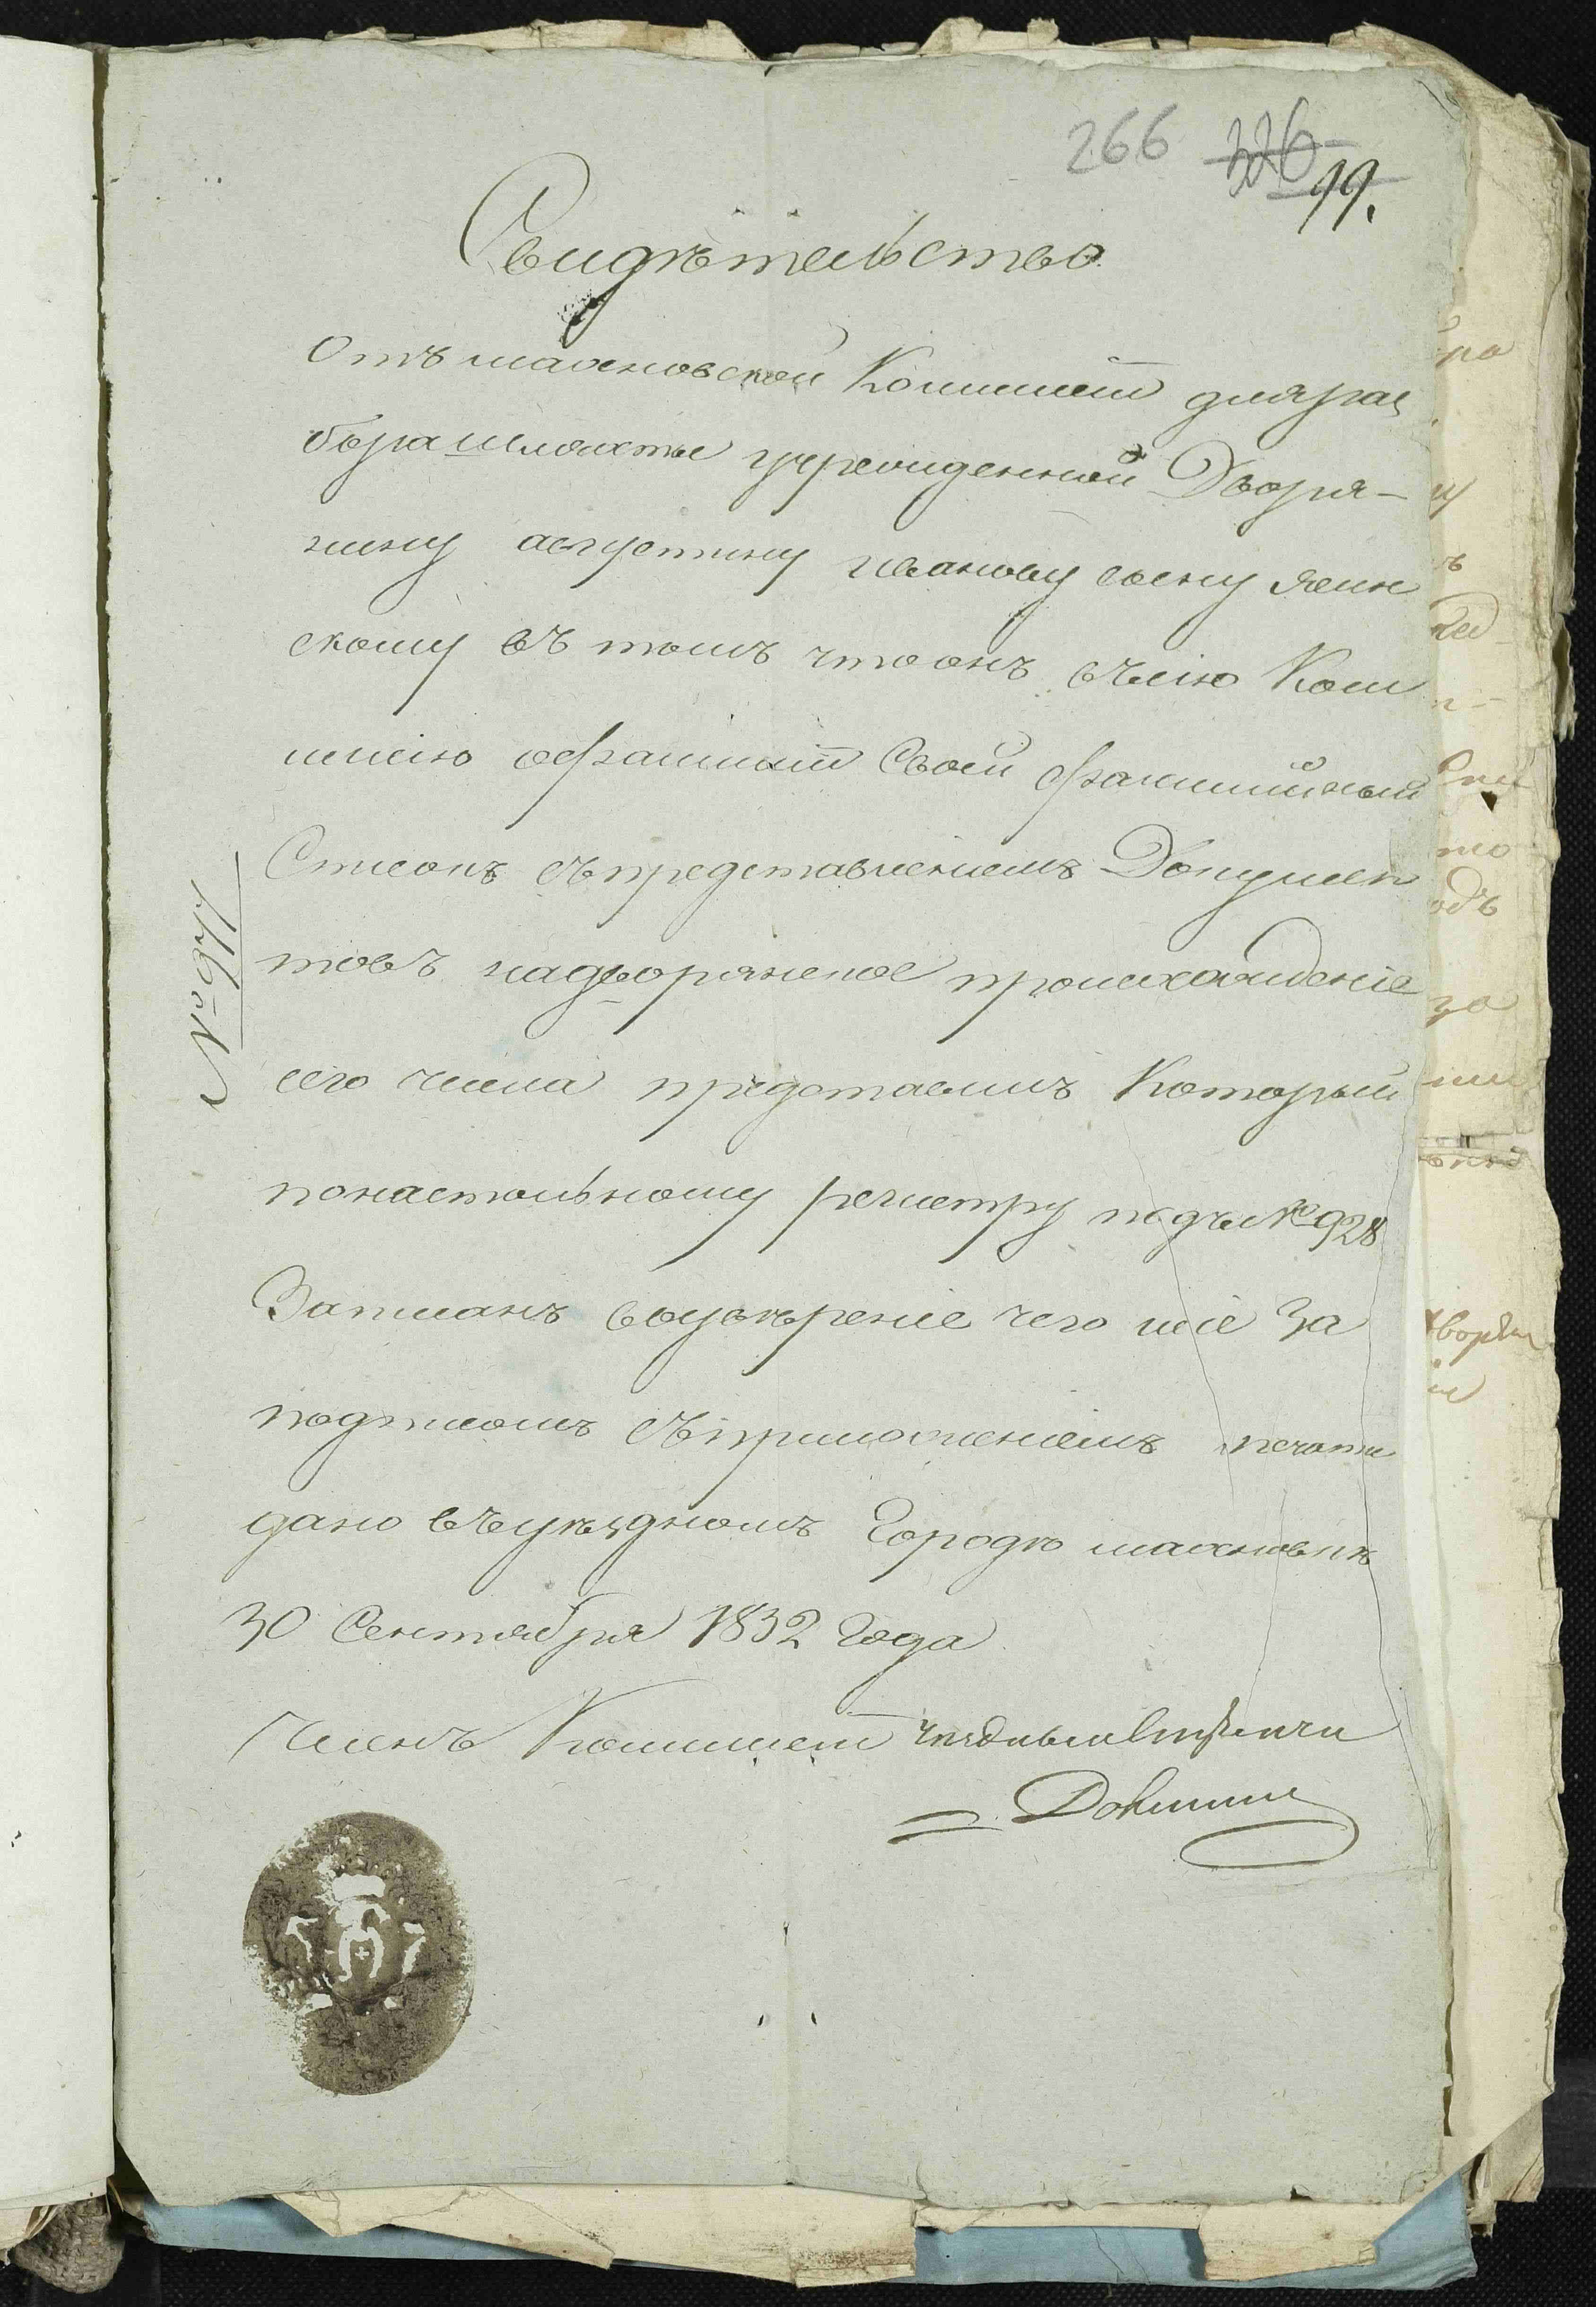 266 326 99.
Свидѣтельство
Отъ махновской Коммисіи для раз
бора шляхты учрежденной Дворя-
нину августину иванову сыну Ясин
скому въ томъ что онъ въ сію Ком
мисію о фамиліи Своей фамилийный
Списокъ съ представленіемъ Докумен
товъ на дворянское происхождение
сего числа представилъ Который
по настольному регистру подъ № 928
Записанъ во увѣреніе чего сіе За
подписомъ съ приложеніемъ печати
дано въ уѣздномъ Городѣ махновкѣ
30 Сентября 1832 Года
№ 977
Членъ Коммисіи